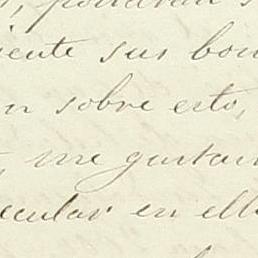 pondrán
iente sus bon
n sobre esto,
, me gustar
ecular en ell